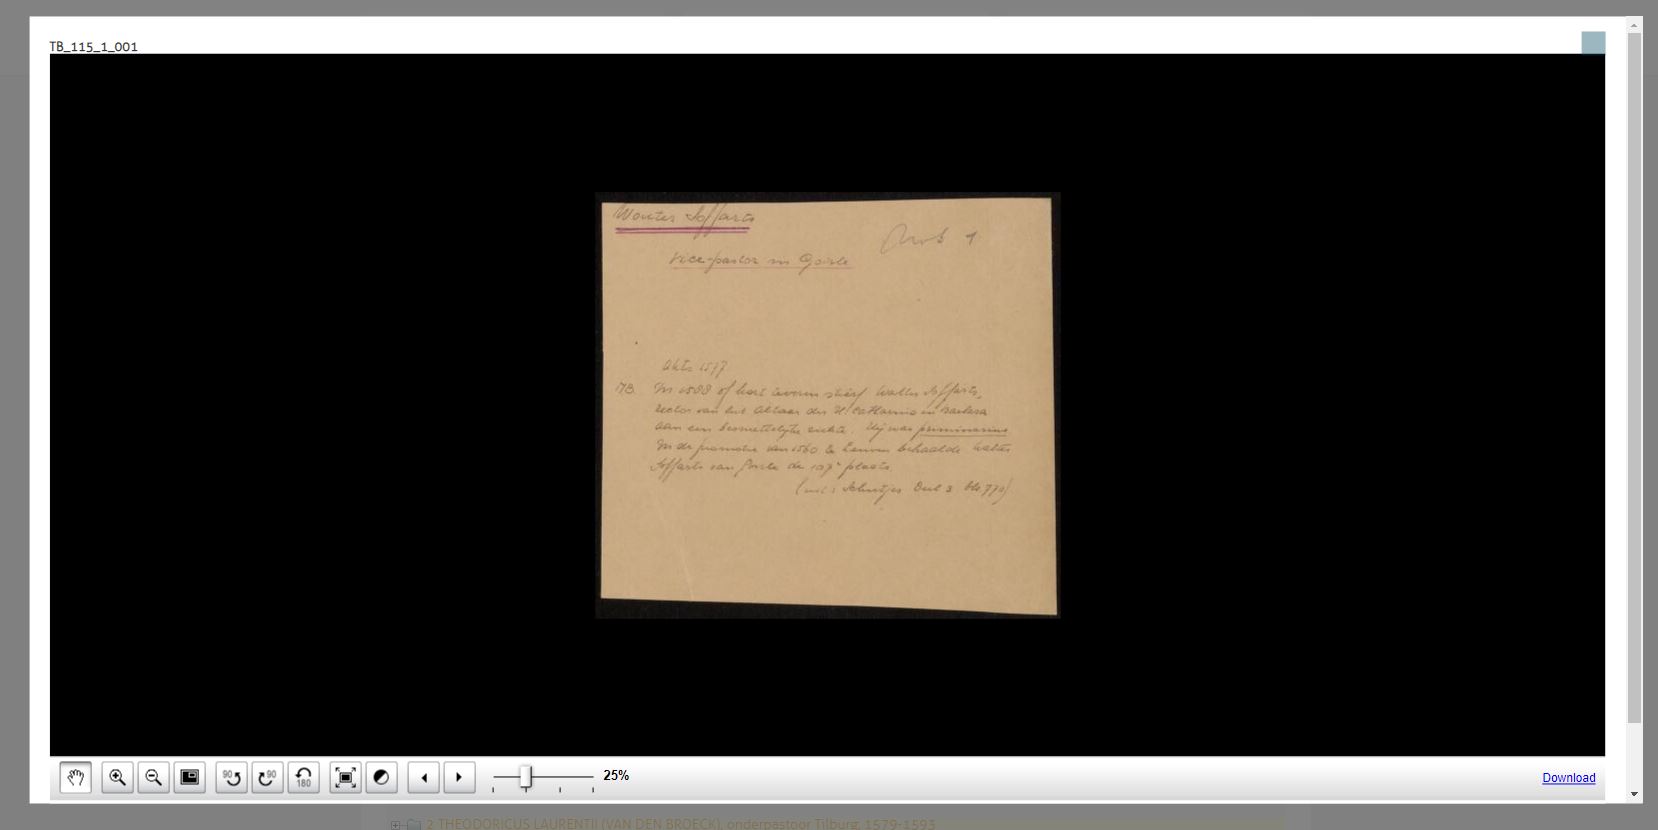 TB_115_1_001
Wouter Soffarts
vice-pastor in Goirle
1
Akte 1577
NB. In 1588 of kort tevoren stierf Walter Soffarts,
rector van het Altaar der H. Catharina en Barbara
aan een besmettelijke ziekte. Hij was
In de promotie van 1560 te Leuven behaalde Walter
Soffarts van Goirle de 107e plaats.
Schutjes Deel 3 blz. 770)
90
90
180
25%
Download
2 THEODORICUS LAURENTII (VAN DEN BROECK), onderpastoor Tilburg, 1579-1593